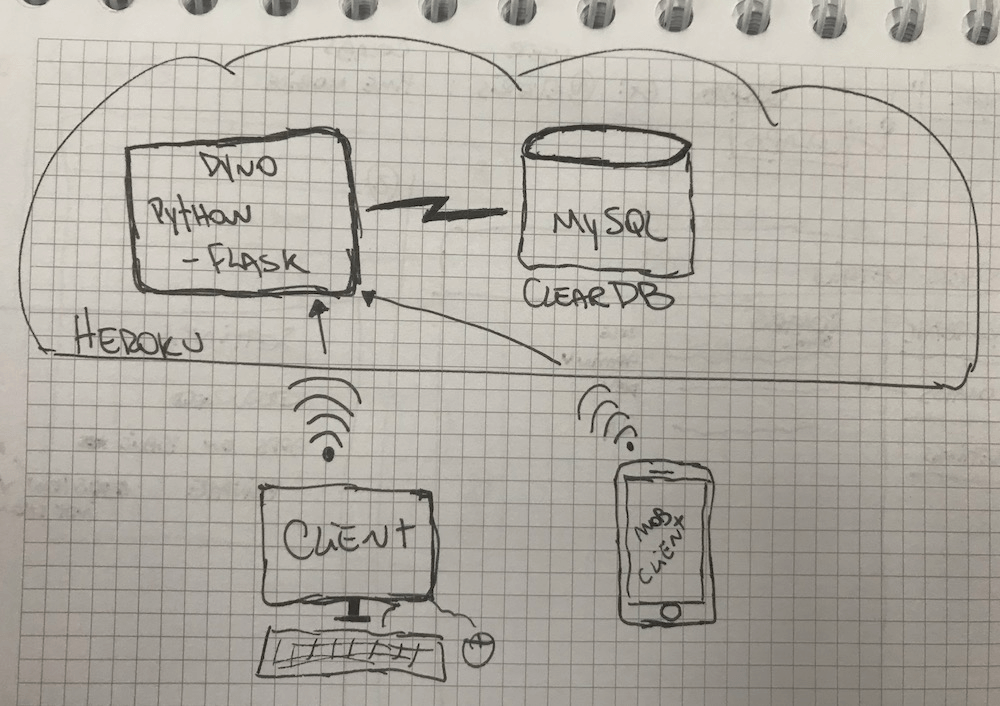 DYNO
PYTHON
- FLASK
MySQL
CLEARDB
HEROKU
CLIENT
MOB
CLIENT